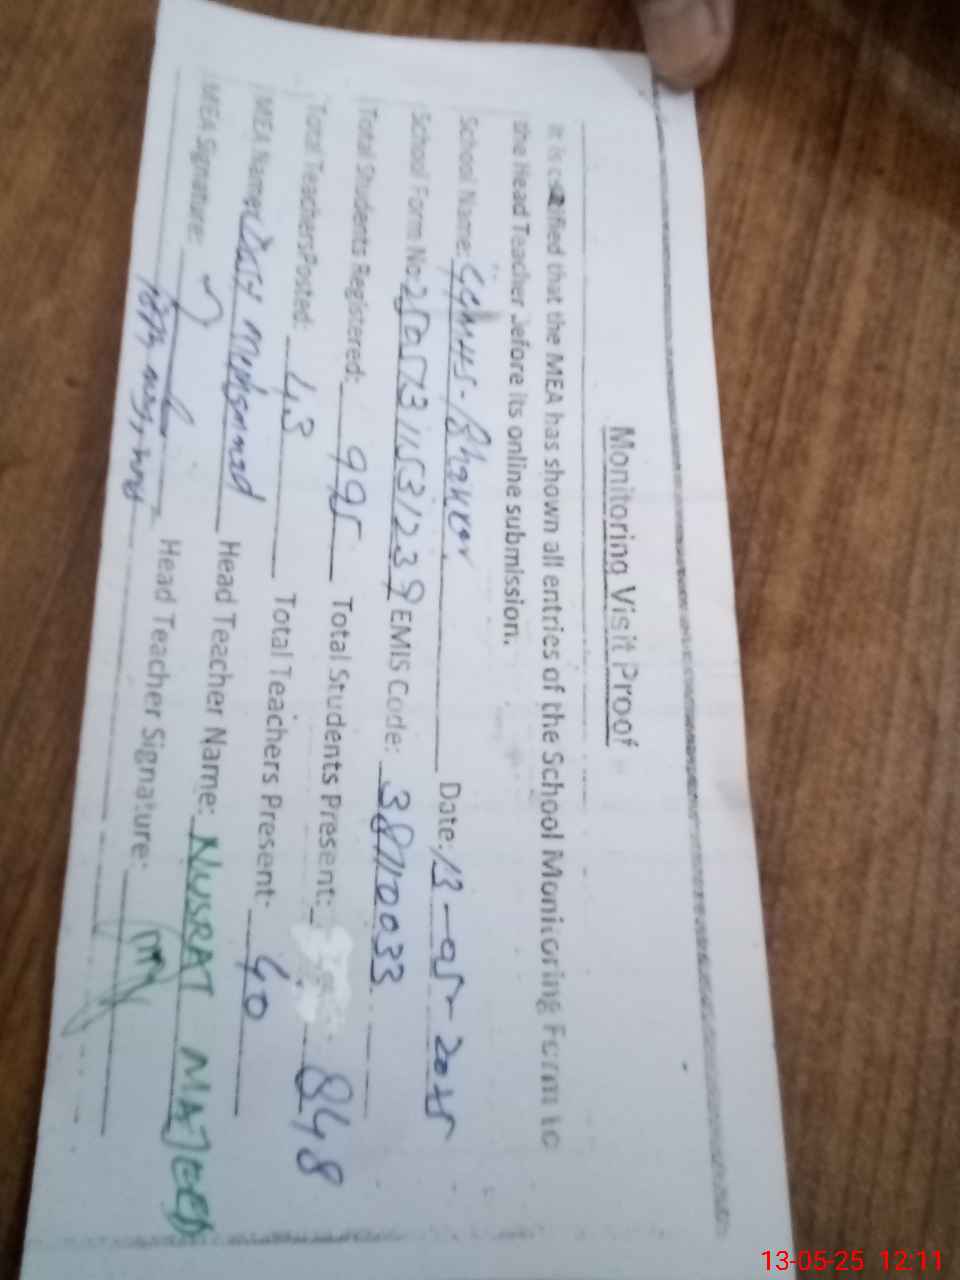 Monitoring Visit Proof
It is certified that the MEA has shown all entries of the School Monitoring Form to
the Head Teacher before its online submission.
School Name: GGHHS- Date: 13-05-2025
School Form No: 25051311531239 EMIS Code: 38110033
Total Students Registered: 995 Total Students Present: 848
Total Teachers Posted: 43 Total Teachers Present: 40
MEA Name: Muhammad Head Teacher Name: NUSRAT MAJEED
MEA Signature: Head Teacher Signature:
13-05-25 12:11